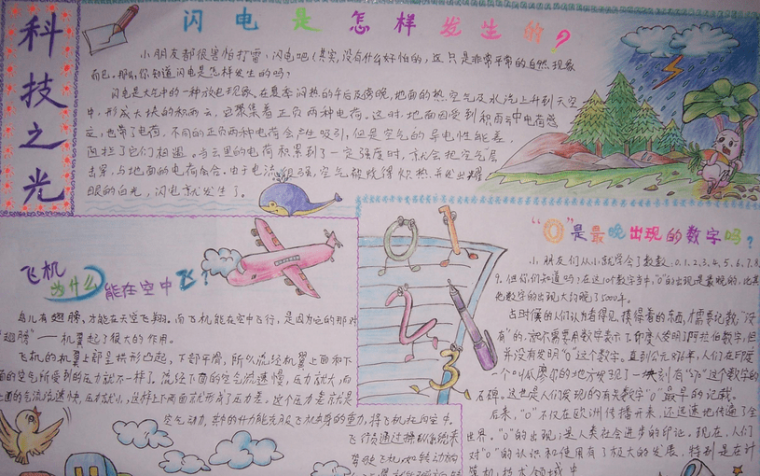 科技之光
闪电是怎样发生的?
小朋友都很害怕打雷、闪电吧!其实,没有什么好怕的,这只是非常平常的自然现象
而已。那么你知道闪电是怎样发生的吗?
闪电是大气中的一种放电现象。在夏季闷热的午后及傍晚,地面的热空气及水汽上升到天空
中,形成大块的积雨云,它聚集着正负两种电荷。这时,地面因受到积雨云中电荷感
应,也带了电荷。不同的正负两种电荷会产生吸引,但是空气的导电性能差,
阻拦了它们相遇。当云里的电荷积累到了一定强度时,就会把空气层
击穿,与地面的电荷结合。由于电流很强,空气都被烧得炽热,并发出耀
眼的白光,闪电就发生了。
飞机为什么能在空中飞?
鸟儿有翅膀,才能在天空飞翔。而飞机能在空中飞行,是因为它的那对
翅膀”——机翼起了很大的作用。
飞机的机翼上部呈拱形凸起,下部平滑,所以流经机翼上面和下
面的空气所受到的压力就不一样了。流经下面的空气流速慢,压力就大,而
上面的气流流速快,压力就小,这样上下两面就形成了压力差。这个压力差就是
空气动力,它的升力能克服飞机本身的重力,将飞机托向空中。
飞行员通过操纵系统来
驾驶飞机,如转动的
0
1
2
3
“0”是最晚出现的数字吗?
小朋友们从小就学会了数数,0、1、2、3、4、5、6、7、8、
9。但你们知道吗?在这10个数字当中,“0”的出现是最晚的,比其
他数字的出现大约晚了5000年。
古时候的人们认为看得见、摸得着的东西,才需要记载,“没
有”的,就不需要用数字表示了。即使发明了阿拉伯数字,但
并没有发明“0”这个数字。直到公元876年,人们在印度
一个叫瓜廖尔的地方发现了一块刻有“270”这个数字的
石碑。这也是人们发现的有关数字“0”最早的记载。
后来,“0”不仅在欧洲传播开来,还迅速地传遍了全
世界。“0”的出现,是人类社会进步的印记。现在,人们
对“0”的认识和使用有了极大的发展,特别是在计
算机技术领域中